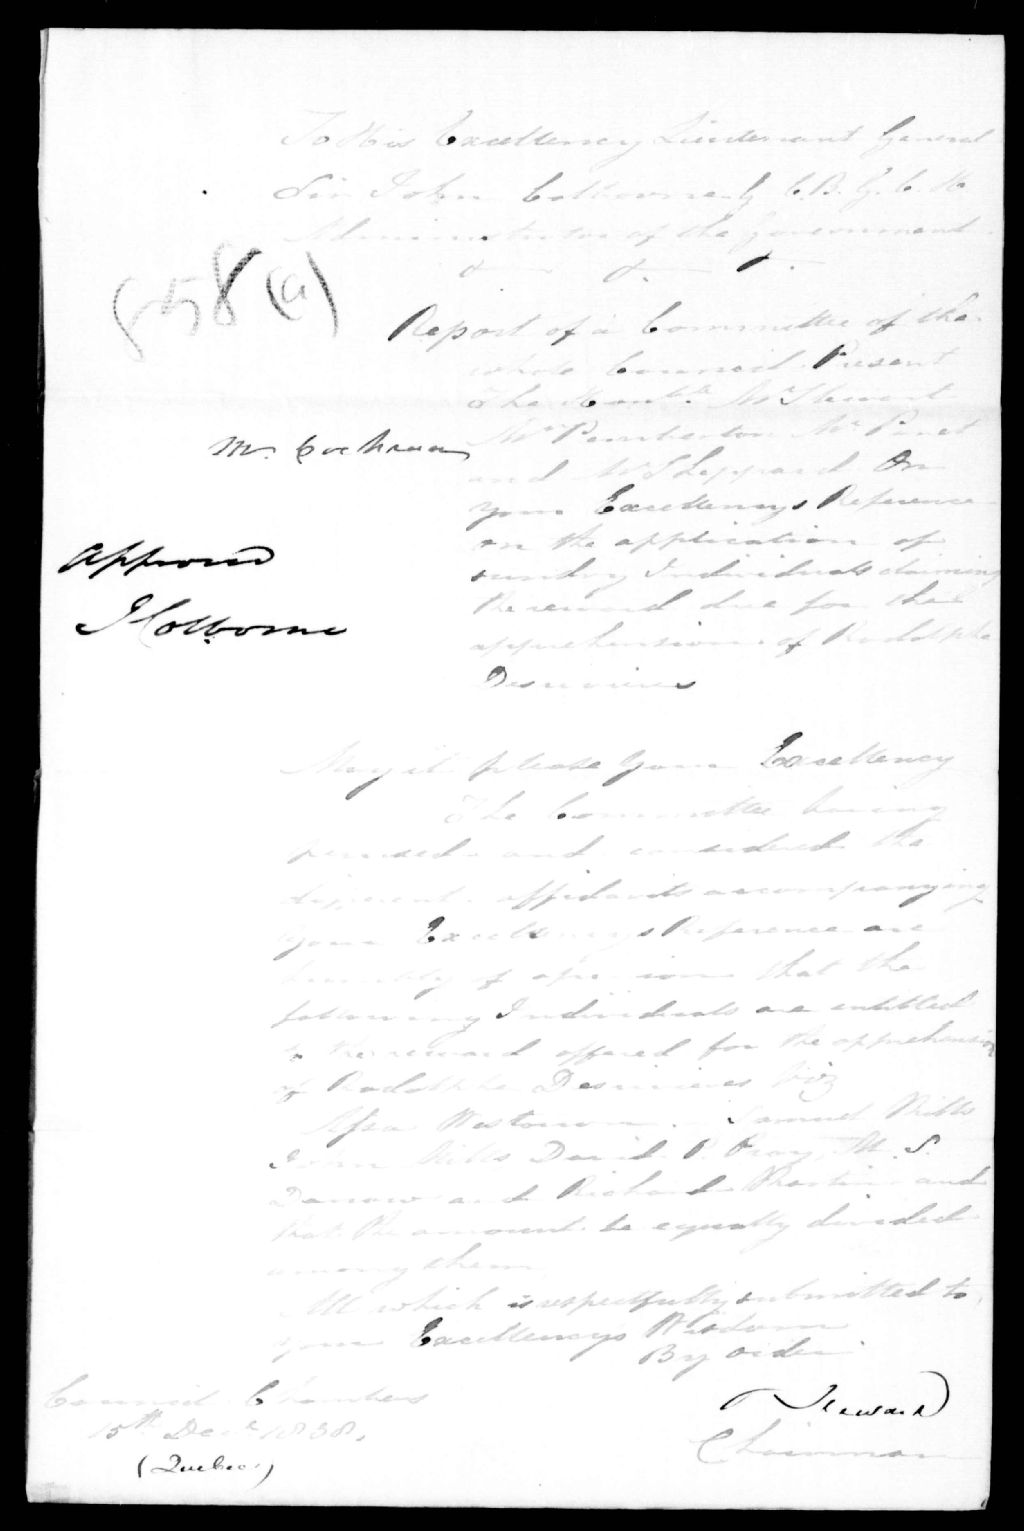 To His Excellency Lieutenant General
Sir John Colborne G. C. B. G. C. H.
Administrator of the Government
&c &c &c
858(a)
Report of a Committee of the
whole Council Present
The Honble. Mr Stewart
Mr Pemberton Mr Panet
and Mr Sheppard On
your Excellencys Reference
on the application of
sundry Individuals claiming
the reward due for the
apprehension of Rodolphe
Desrivieres
Mr. Cochran
Approved
J Colborne
May it please Your Excellency
The Committee having
perused and considered the
different affidavits accompanying
Your Excellencys Reference are
humbly of opinion that the
following Individuals are entitled
to the reward offered for the apprehension
of Rodolphe Desrivieres Viz
Samuel Mills
John Mills David P. M. S.
and Richard and
that the amount be equally divided
among them
All which is respectfully submitted to
your Excellency's Wisdom
By order
Stewart
Chairman
Council Chambers
15th Decr. 1838.
(Quebec.)